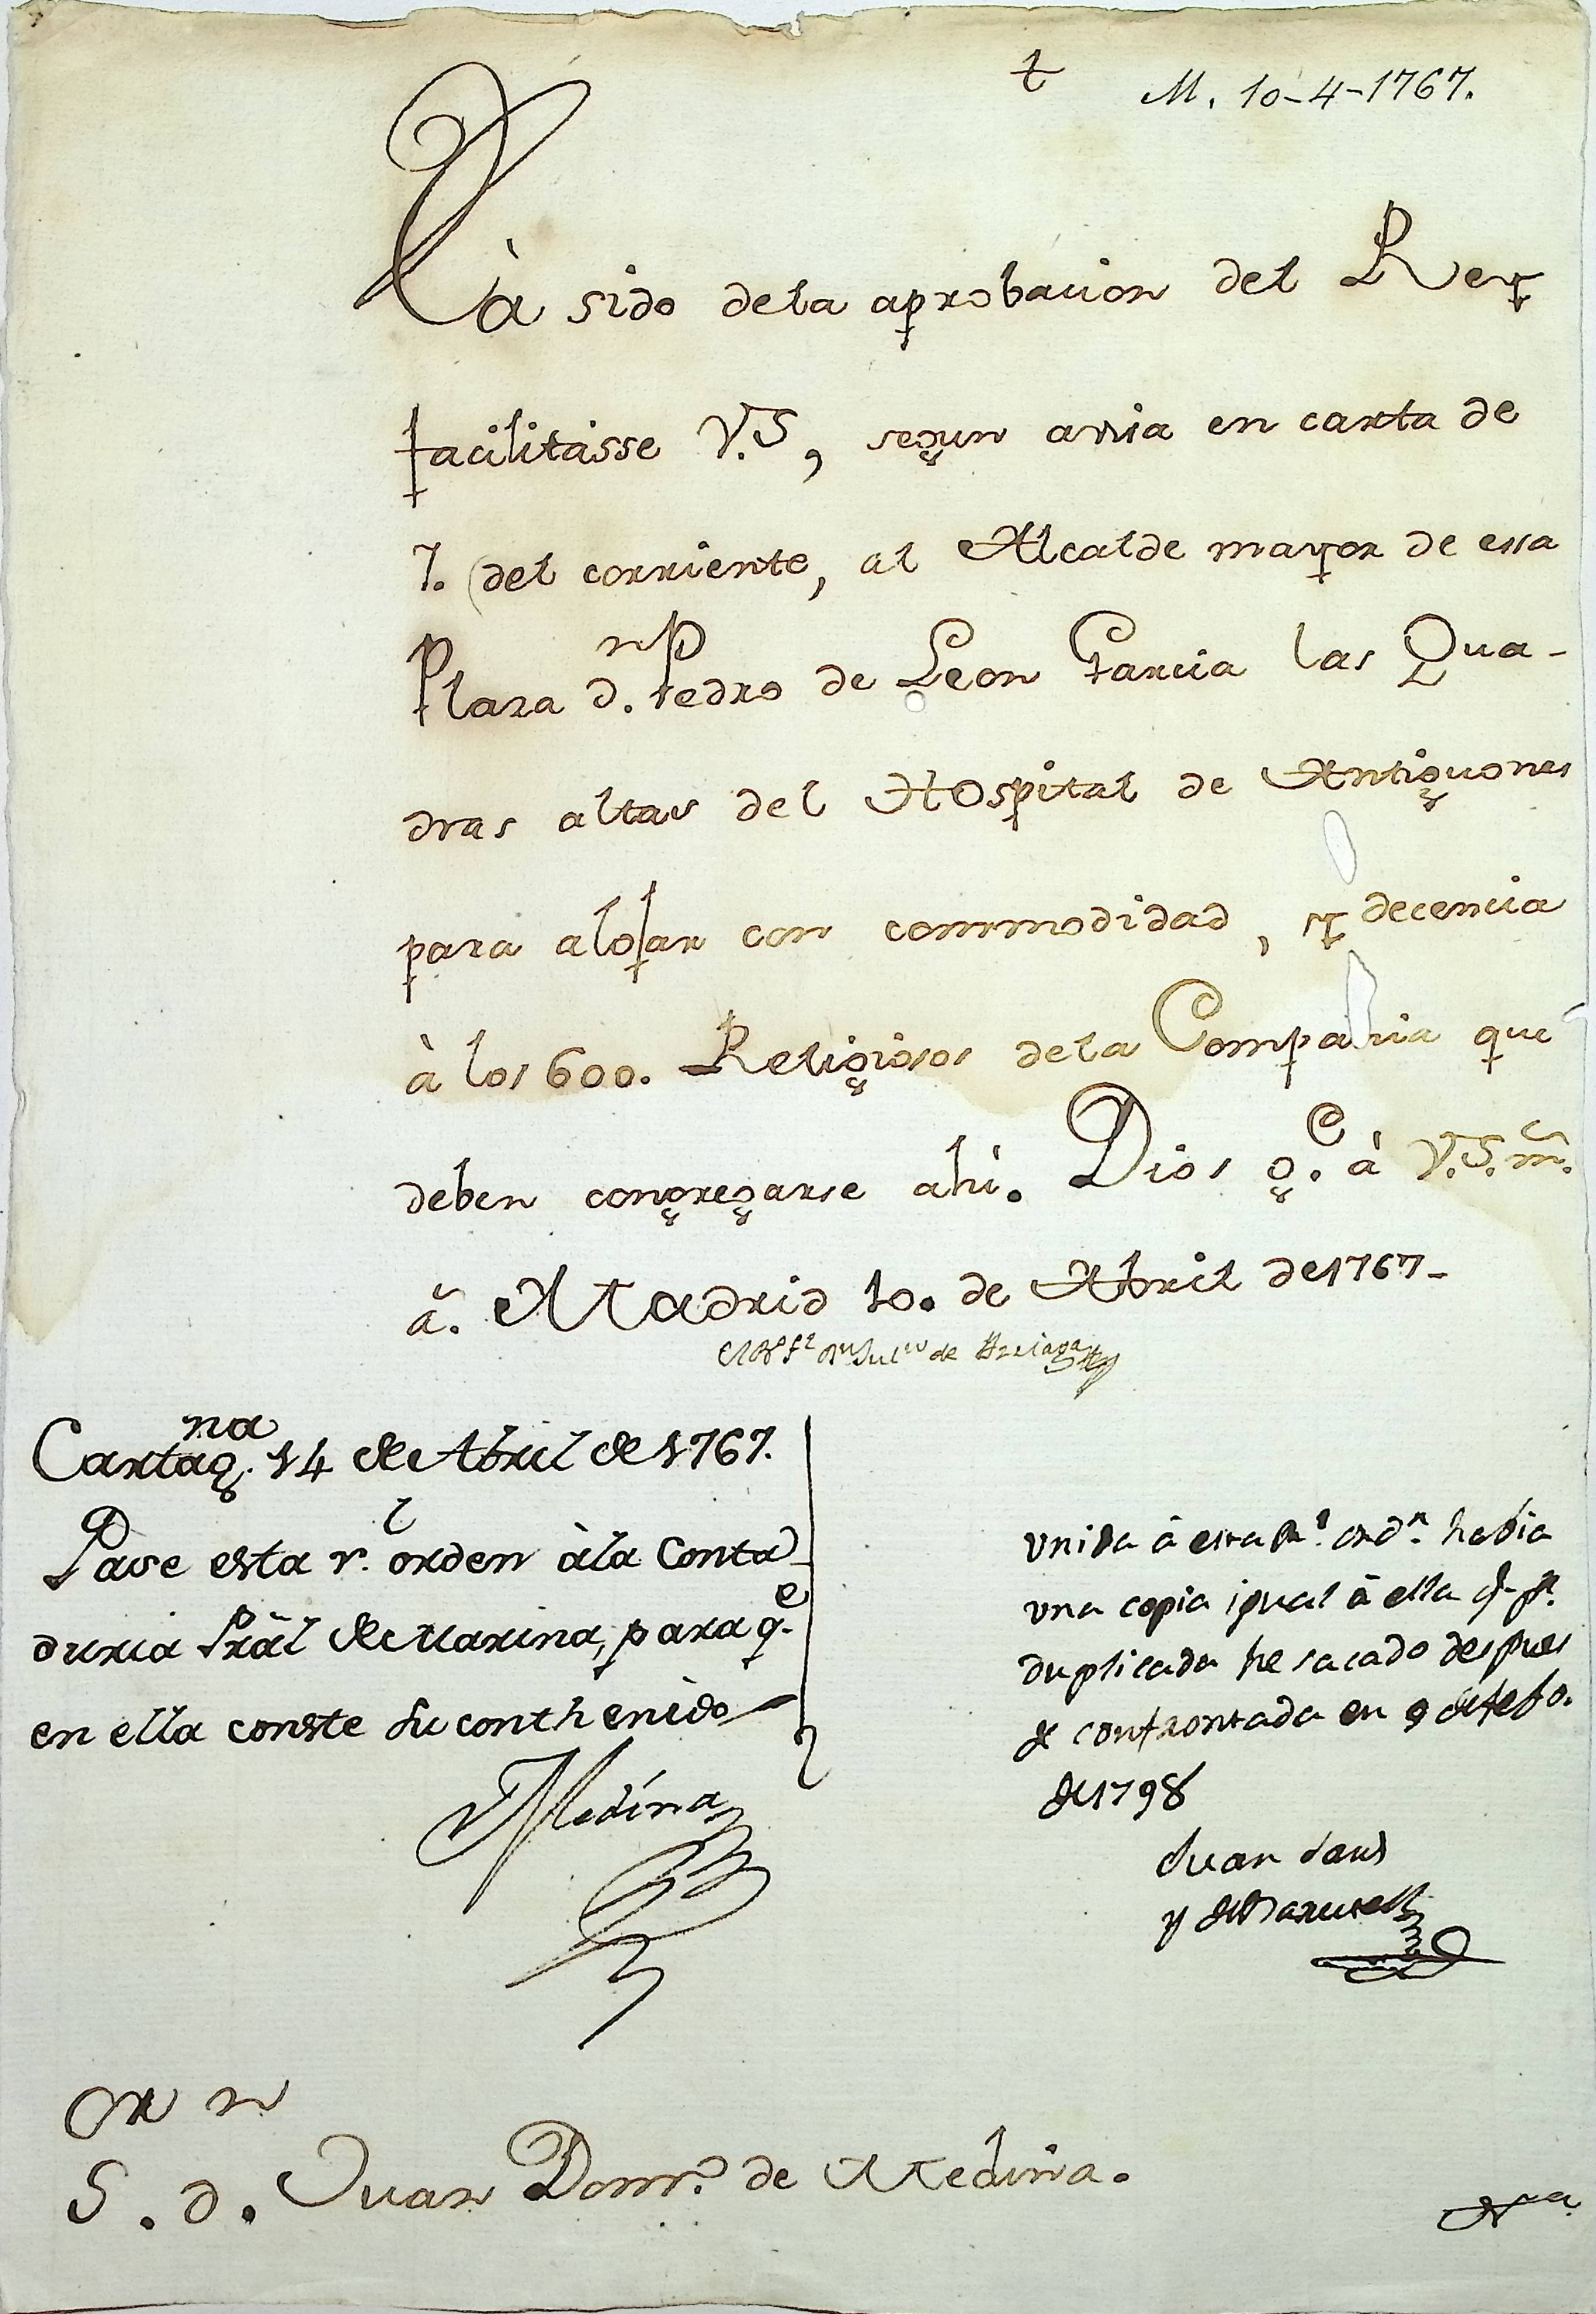 t M. 10-4-1767.
Hà sido dela aprobacion del Rey
facilitàsse V.S, segun avisa en carta de
7. del corriente, al Alcalde mayor de essa
Plaza d.n Pedro de Leon Garcia las Qua-
dras altas del Hospital de Antiguones
para alojar con commodidad, y decencia
à los 600. Religiosos dela Compañia que
deben congregarse ahì. Dios g.e à V.S. m.s
a.s Madrid 10. de Abril de 1767-
de Arriaga
Cartag.na 14 de Abril de 1767.
Pase esta r.l orden àla Conta
duria Prâl de Marina, para q.e
en ella conste su conthenido
Medina
Unida à esta R.l ord.n habia
una copia igual à ella q.e p.r
duplicada he sacado despues
de confrontada en 9 de feb.o
de 1798
Juan
S.or d.n Juan Dom.o de Medina.